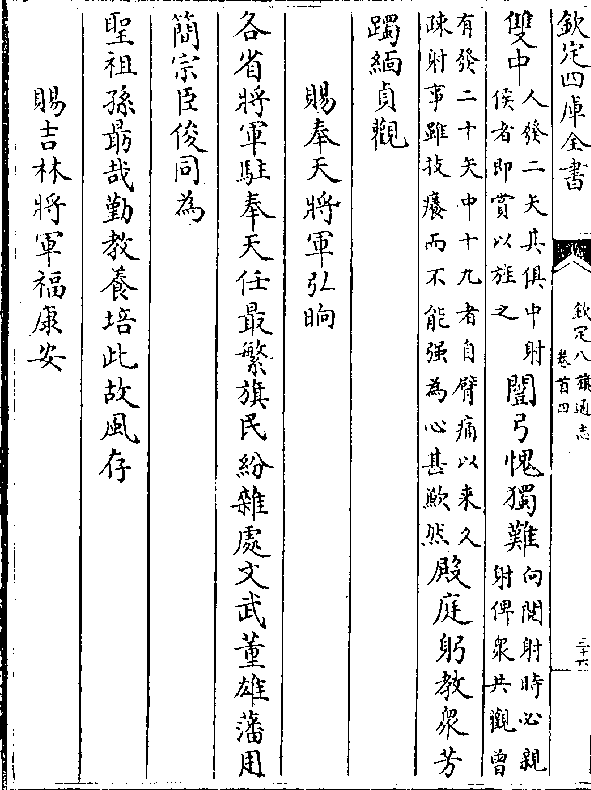 欽定四庫全書
欽定八旗通志
卷首四
三十六
雙中
人發二矢其俱中射
侯者即賞以旌之
闓弓愧獨難
向閱射時必親
射俾衆共觀曾
有發二十矢中十九者自臂痛以来久
疎射事雖技癢而不能强為心甚歉然
殿庭躬教衆芳
躅緬貞觀
賜奉天將軍弘晌
各省將軍駐奉天任最繁旗民紛雜處文武董雄藩用
簡宗臣俊同為
聖祖孫朂哉勤教養培此故風存
賜吉林將軍福康安